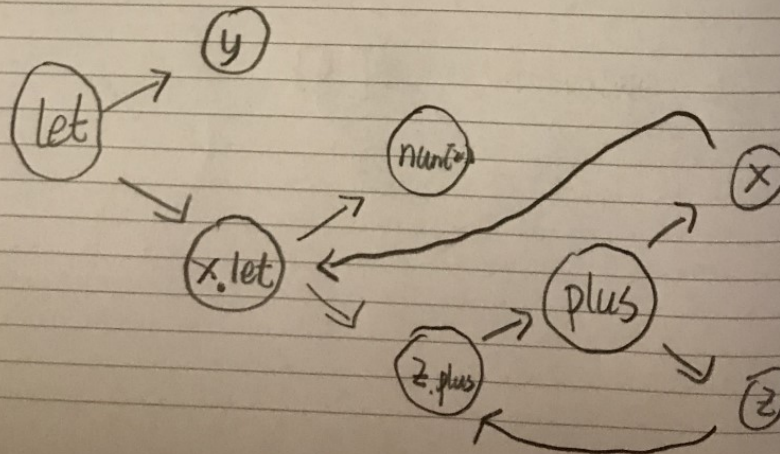 y
let
num[2]
x
x.let
plus
z.plus
z